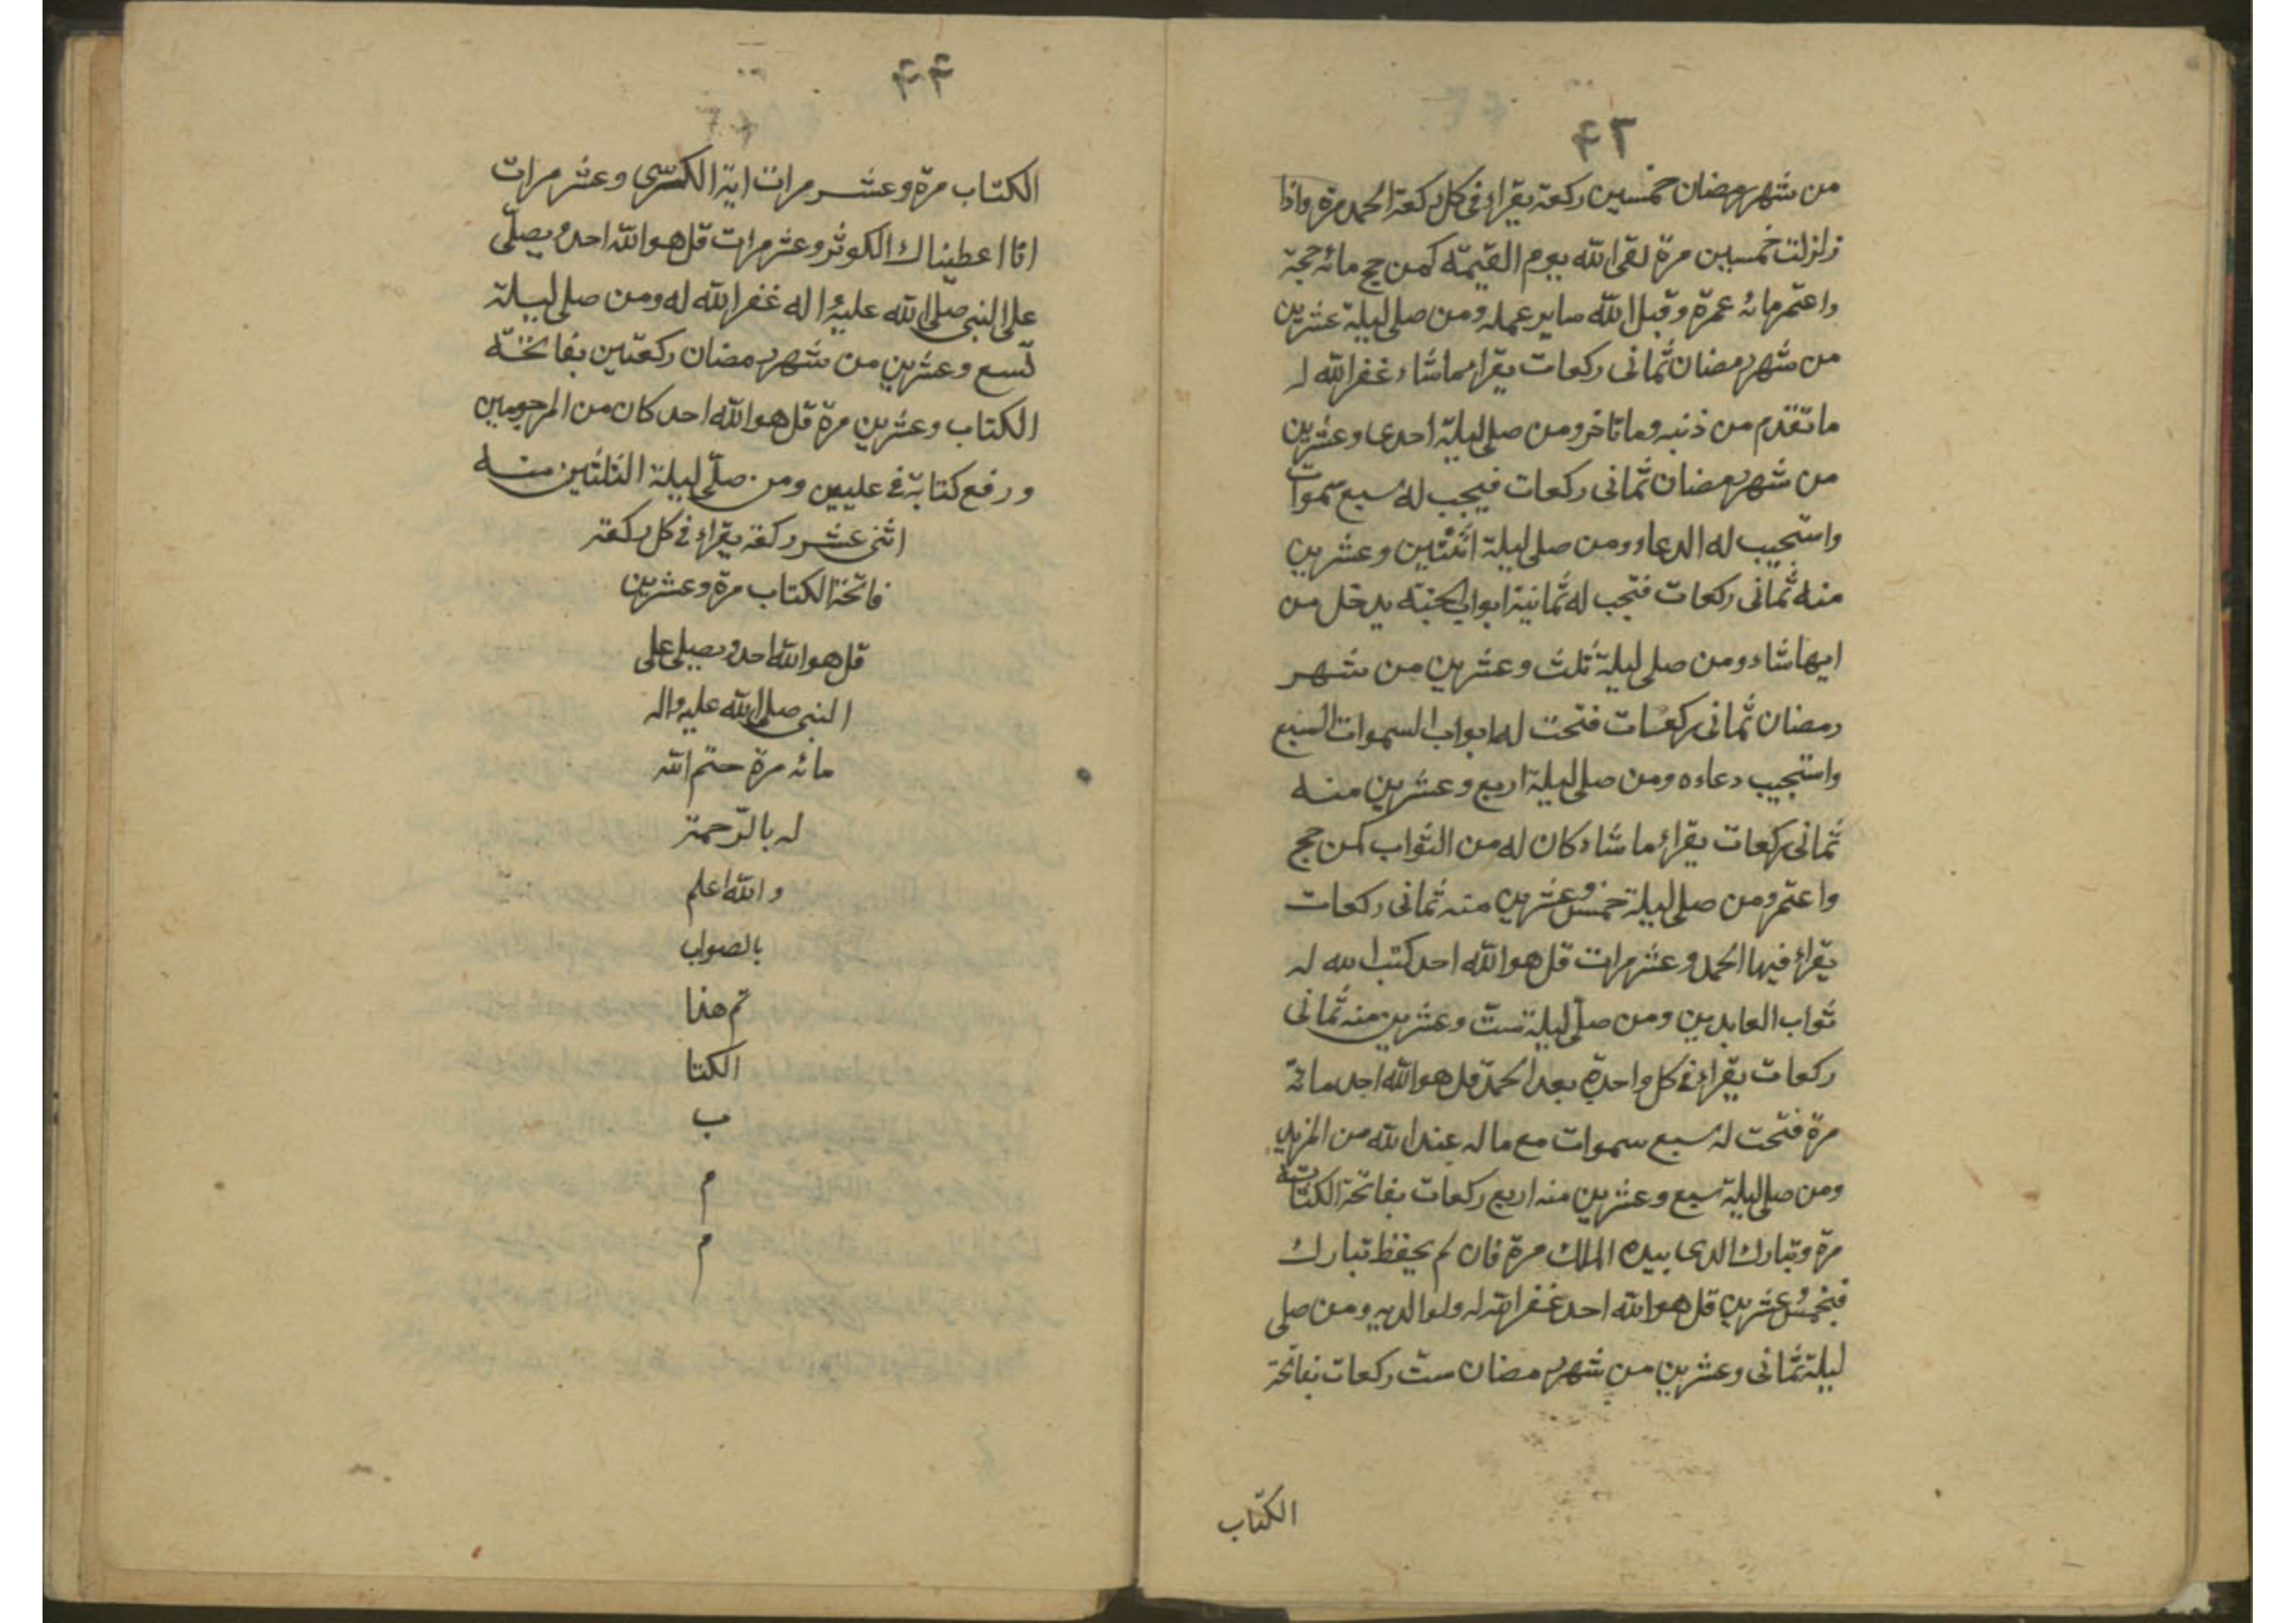 ۴۳
من شهر رمضان خمسین رکعة یقراء فی کل رکعة الحمد مرة واذا
زلزلت خمسین مرة لقی الله یوم القیمة کمن حج مائة حجة
واعتمر مائة عمرة وقبل الله سایر عمله ومن صلی لیلة عشرین
من شهر رمضان ثمانی رکعات یقراء ماشاء غفر الله له
ما تقدم من ذنبه وما تاخر ومن صلی لیلة احدی وعشرین
من شهر رمضان ثمانی رکعات فیجب له سبع سموات
واستجیب له الدعاء ومن صلی لیلة اثنتین وعشرین
منه ثمانی رکعات فتحب له ثمانیة ابواب الجنة یدخل من
ایها شاء ومن صلی لیلة ثلث وعشرین من شهر
رمضان ثمانی رکعات فتحت له ابواب السموات السبع
واستجیب دعاءه ومن صلی لیلة اربع وعشرین منه
ثمانی رکعات یقراء ما شاء کان له من الثواب کمن حج
واعتمر ومن صلی لیلة خمس وعشرین منه ثمانی رکعات
یقراء فیها الحمد وعشر مرات قل هو الله احد کتب الله له
ثواب العابدین ومن صلّی لیلة ست وعشرین منه ثمانی
رکعات یقراء فی کل واحدة بعد الحمد قل هو الله احد مائة
مرة فتحت له سبع سموات مع ما له عند الله من المزید
ومن صلی لیلة سبع وعشرین منه اربع رکعات بفاتحة الکتاب
مرة وتبارک الذی بیده الملک مرة فان لم یحفظ تبارک
فبخمس وعشرین قل هو الله احد غفر الله له ولوالدیه ومن صلی
لیلة ثمانی وعشرین من شهر رمضان ست رکعات بفاتحة
الکتاب
۴۴
الکتاب مرة وعشر مرات ایة الکرسی وعشر مرات
انا اعطیناک الکوثر وعشر مرات قل هو الله احد ویصلّی
علی النبی صلّی الله علیه واله غفر الله له ومن صلی لیلة
تسع وعشرین من شهر رمضان رکعتین بفاتحة
الکتاب وعشرین مرة قل هو الله احد کان من المرحومین
ورفع کتابه فی علیین ومن صلّی لیلة الثلثین منه
اثنی عشر رکعة یقراء فی کل رکعة
فاتحة الکتاب مرة وعشرین
قل هو الله احد ویصلی علی
النبی صلی الله علیه واله
مائة مرة ختم الله
له بالرّحمة
والله اعلم
بالصواب
تم هذا
الکتا
ب
م
م